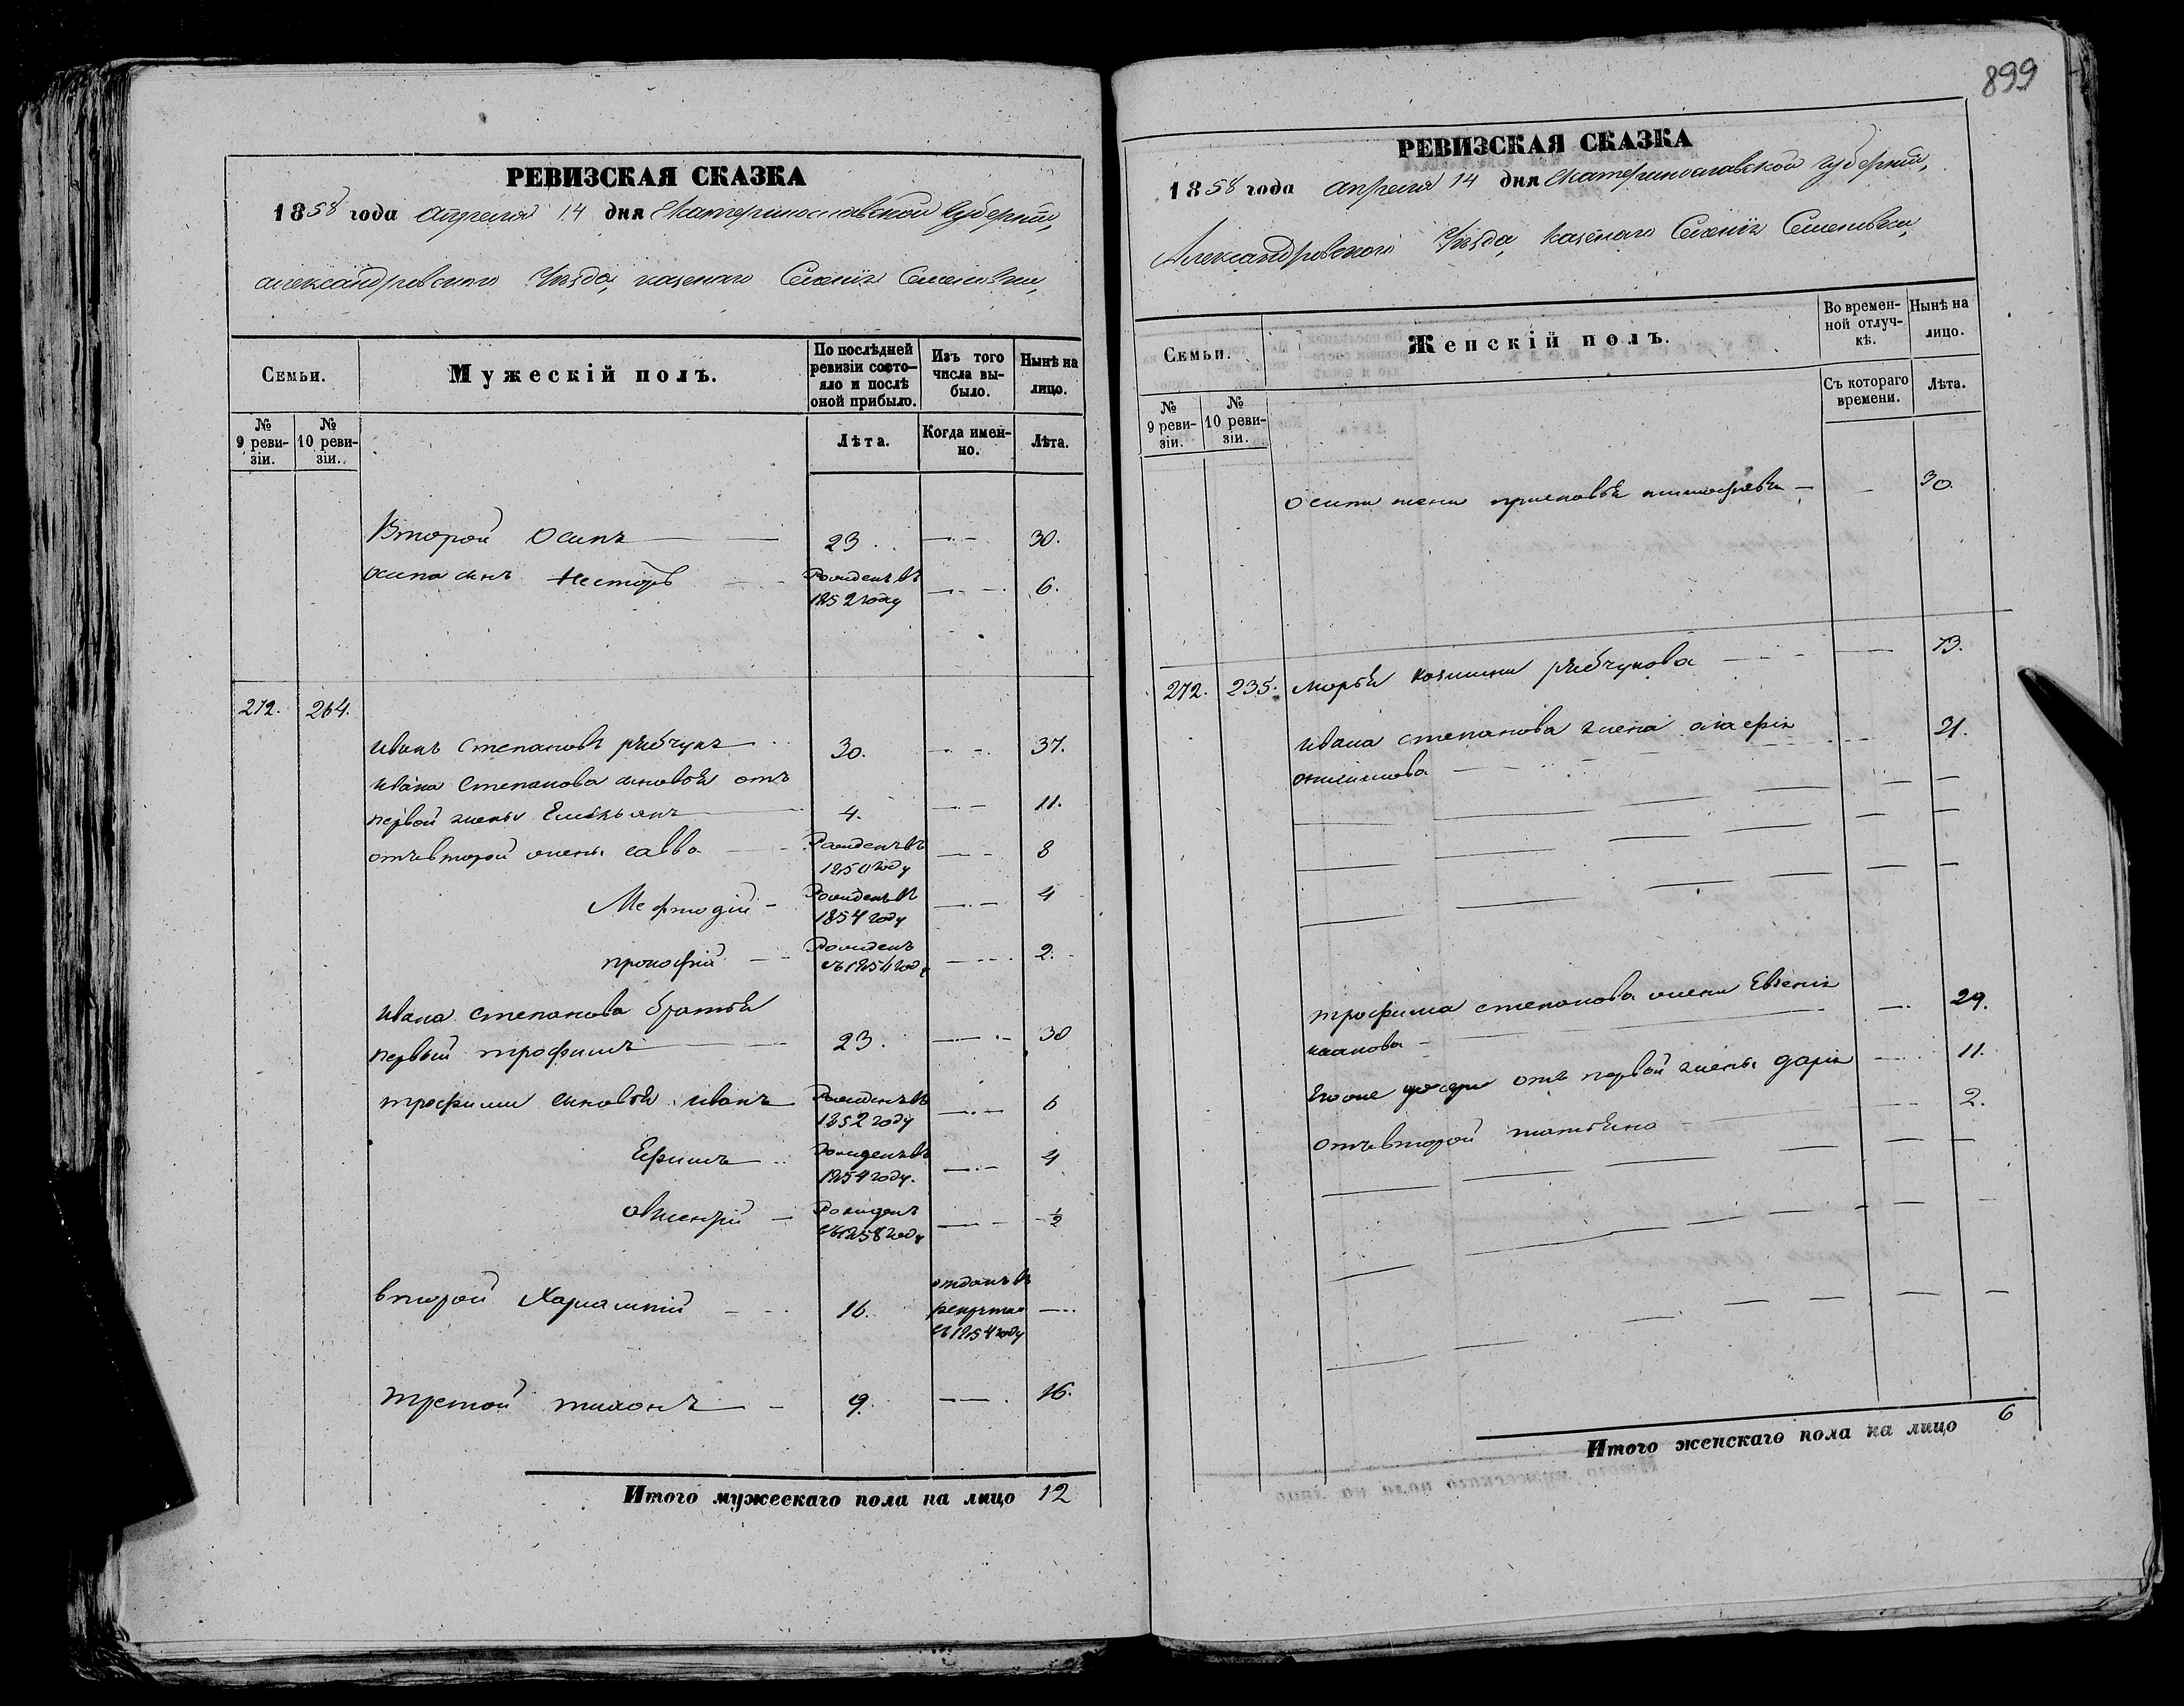 РЕВИЗСКАЯ СКАЗКА
1858 года апреля 14 дня Екатеринославской Губернии,
александровского Уѣзда, казенаго Селенія Семеновки,
Семьи.
Мужескій полъ.
По послѣдней ревизіи состояло и послѣ оной прибыло.
Изъ того числа выбыло.
Нынѣ на лицо.
№ 9 ревизіи.
№ 10 ревизіи.
Лѣта.
Когда именно.
Лѣта.
Второй Осипъ 23. 30.
осипа сынъ Несторъ Рожденъ въ 1852 году 6.
272. 264.
иванъ степановъ рябчукъ 30. 37.
ивана степанова сыновья отъ
первой жены Емельянъ 4. 11.
отъ второй жены савва Рожденъ въ 1850 году 8
Мефтодій Рожденъ въ 1854 году 4
прокофій Рожденъ въ году 2.
ивана степанова братья
первый трофимъ 23. 30
трофима сыновья иванъ Рожденъ въ 1852 году 6
Ефимъ Рожденъ въ 1854 году. 4
Рожденъ въ 1858 году ½
второй Харлампій 16. отданъ въ рекруты въ 1854 году
третой тихонъ 9. 16.
Итого мужескаго пола на лицо 12
899
РЕВИЗСКАЯ СКАЗКА
1858 года апреля 14 дня Екатеринославской губерніи,
Александровского Уѣзда, казенаго Селенія Семеновки,
Семьи.
Женскій полъ.
Во временной отлучкѣ.
Нынѣ на лицо.
№ 9 ревизіи.
№ 10 ревизіи.
Съ котораго времени.
Лѣта.
осипа жена 30.
272. 235. марья рябчукова 73.
ивана степанова жена 31.
трофима степанова жена Евгенія
29.
Его же дочери отъ первой жены дарія 11.
отъ второй татьяна 2.
Итого женскаго пола на лицо 6